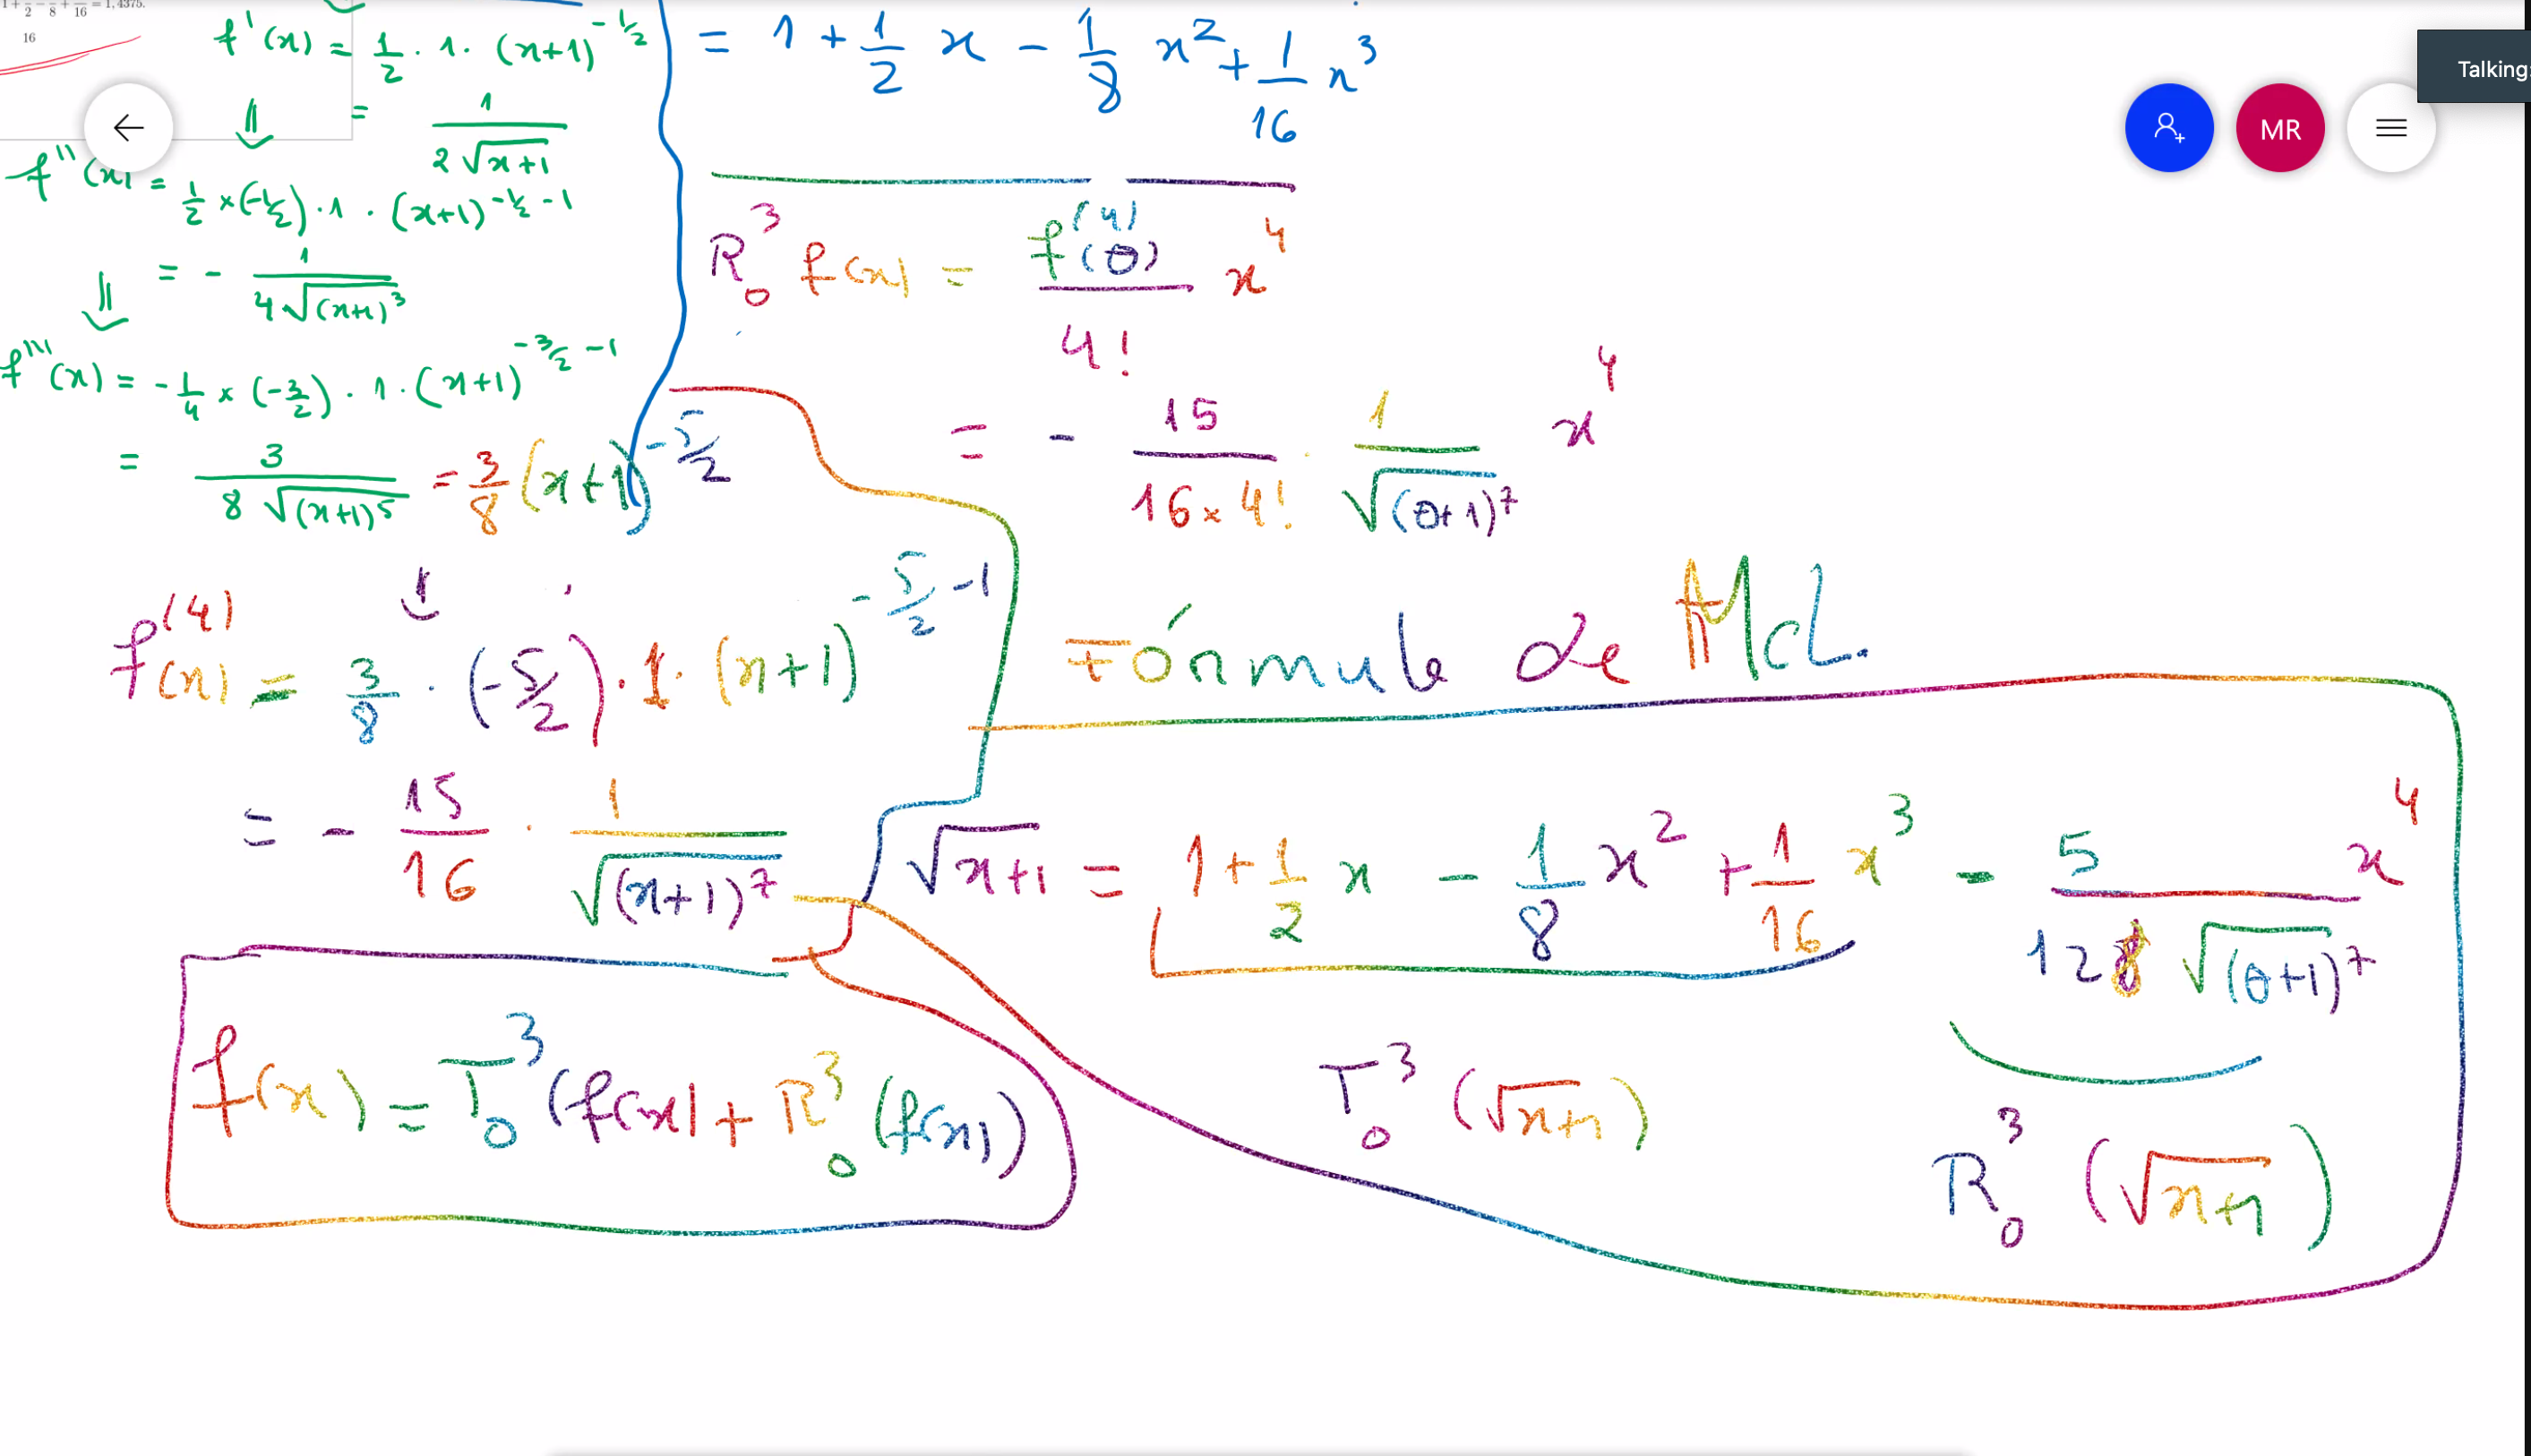 1 + 1/2 − 1/8 + 1/16 = 1,4375.
16
f'(x) = 1/2 · 1 · (x+1)^(-1/2)
= 1/(2√(x+1))
f''(x) = 1/2 × (-1/2) · 1 · (x+1)^(-1/2 -1)
= - 1/(4√(x+1)^3)
f'''(x) = -1/4 × (-3/2) · 1 · (x+1)^(-3/2 -1)
= 3/(8√(x+1)^5) = 3/8 (x+1)^(-5/2)
f^(4)(x) = 3/8 · (-5/2) · 1 · (x+1)^(-5/2 -1)
= - 15/16 · 1/√(x+1)^7
f(x) = T_0^3 (f(x) + R_0^3 (f(x))
= 1 + 1/2 x - 1/8 x^2 + 1/16 x^3
R_0^3 f(x) = f^(4)(θ)/4! x^4
= - 15/(16×4!) · 1/√(θ+1)^7 x^4
Fórmula de McL.
√(x+1) = 1 + 1/2 x - 1/8 x^2 + 1/16 x^3 - 5/(128√(θ+1)^7) x^4
T_0^3 (√(x+1))
R_0^3 (√(x+1))
MR
Talking: